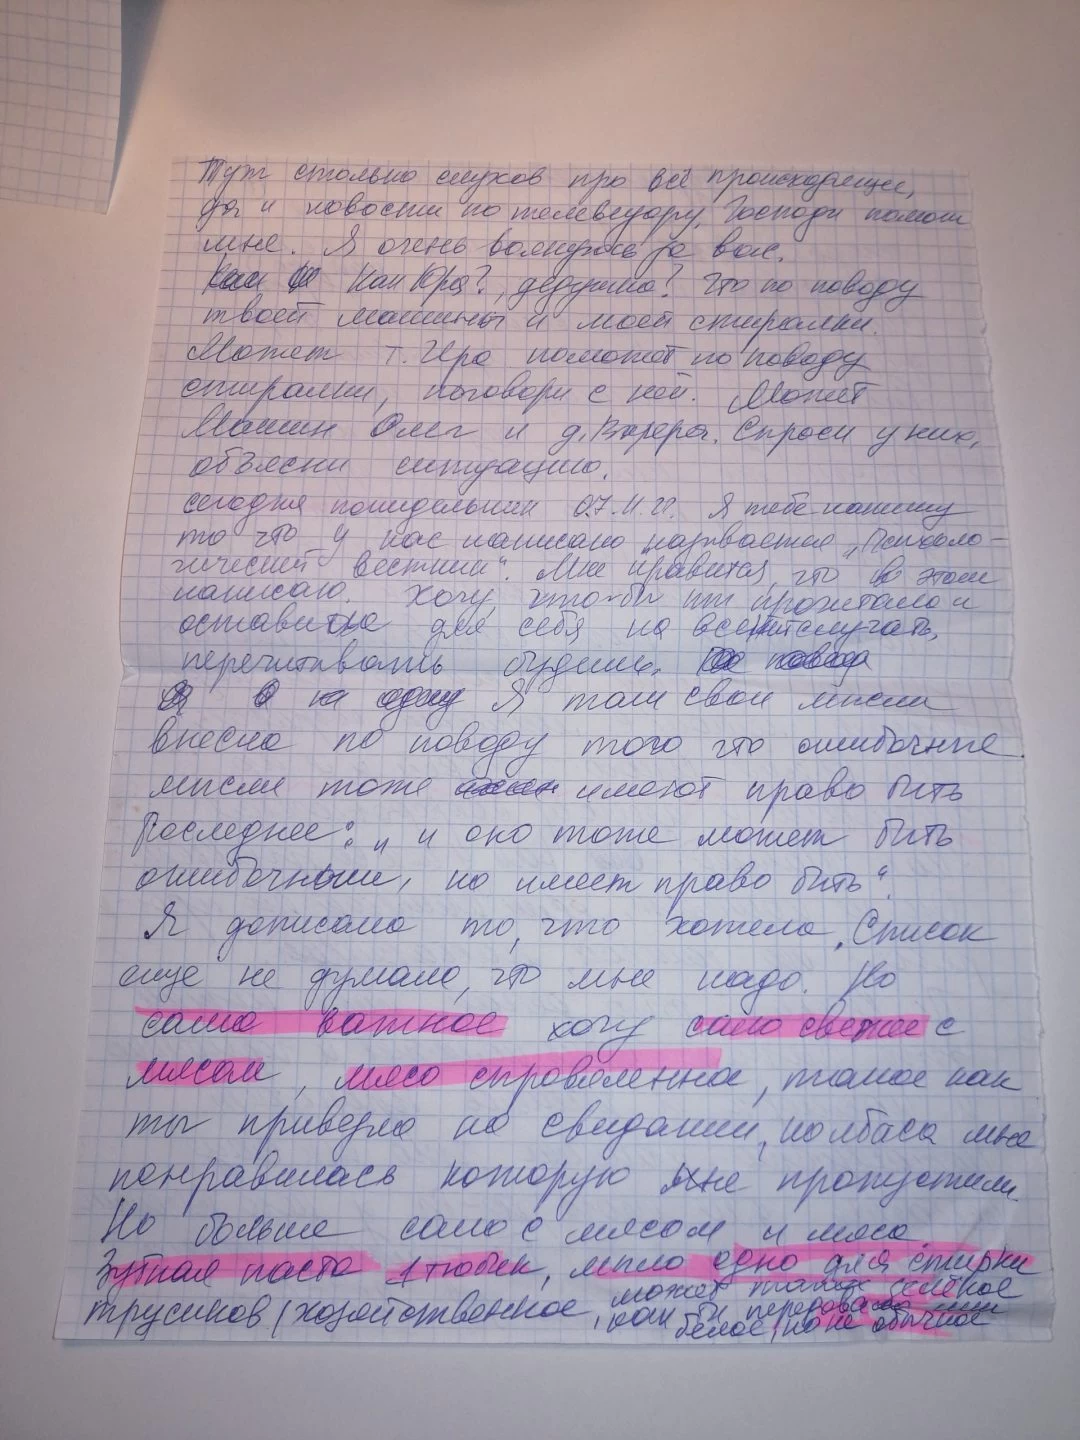 Тут столько слухов про всё происходящее,
да и новости по телевизору, Господи помоги
мне. Я очень волнуюсь за вас.
Как Как Юра?, дедушка? Что по поводу
твоей машины и моей стиралки.
Может т. Ира поможет по поводу
стиралки, поговори с ней. Может
Машин Олег и д. Валера. Спроси у них,
объясни ситуацию.
Сегодня понидельник 07.11.22. Я тебе напишу
то что у нас написано называется „Психоло-
гический вестник“. Мне нравится, что в этом
написано. Хочу, что-бы ты прочитала и
оставила для себя на всякий случай,
перечитывать будешь.
Я там свои мысли
внесла по поводу того что ошибочные
мысли тоже имеют право быть
Последнее: „и оно тоже может быть
ошибочным, но имеет право быть“.
Я дописала то, что хотела. Список
еще не думала, что мне надо. Но
само важное хочу сало свежее с
мясом, мясо спровяленное, такое как
ты привезла на свидании, колбаса мне
понравилась которую мне пропустили
Но больше сало с мясом и мяса.
Зубная паста 1 тюбик, мыло одно для стирки
трусиков (хозяйственное, может такое зелёное
как ты передавала или
белое, но не обычное